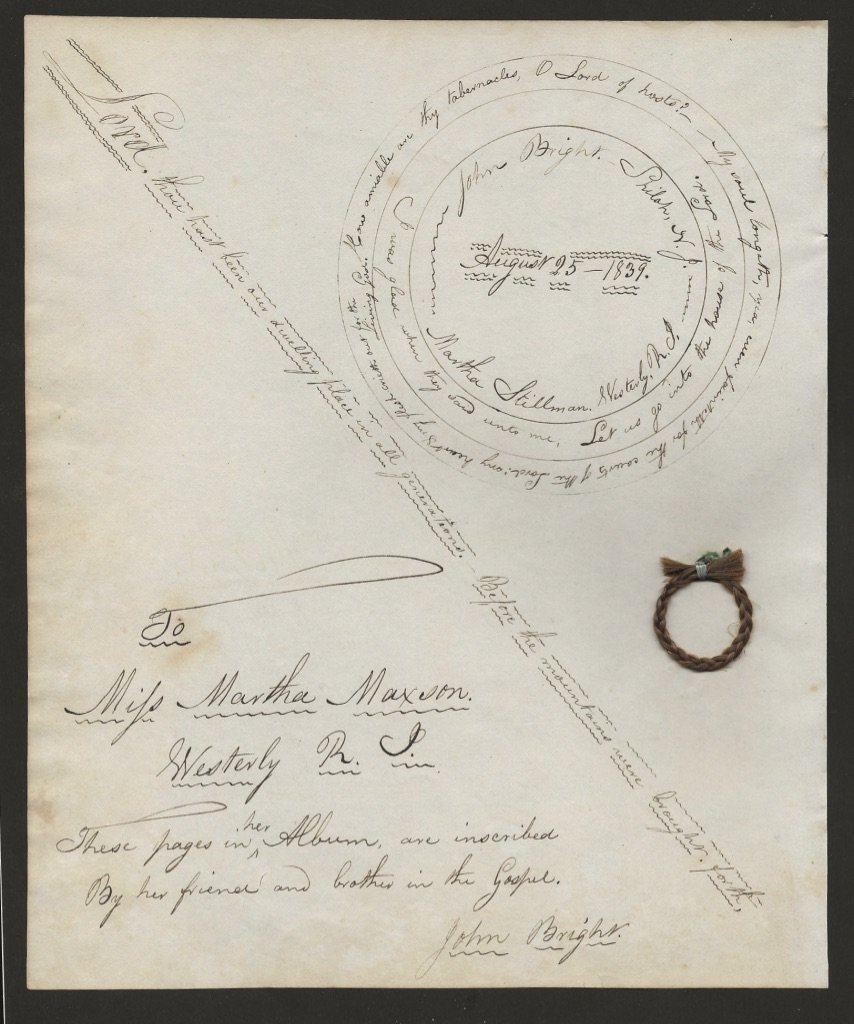 How amiable are thy tabernacles, O Lord of hosts? — My soul longeth, yea, even fainteth for the courts of the Lord: my heart & my flesh crieth out for the living God.
I was glad when they said unto me, Let us go into the house of the Lord.
John Bright. Shiloh, N. J.
August 25 — 1839.
Martha Stillman. Westerly, R. I.
Lord, thou hast been our dwelling place in all generations. — Before the mountains were brought forth,
To
Miſs Martha Maxson.
Westerly R. I.
These pages in her Album, are inscribed
By her friend and brother in the Gospel.
John Bright.